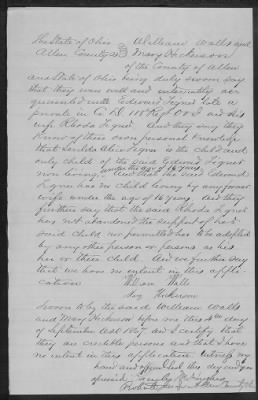 The State of Ohio William Walls and
Allen County SS Mary Dickerson
of the County of Allen
and State of Ohio being duly sworn say
that they were well and intimately ac
quainted with Edward late a
private in Co D 118 Regt OVI and his
wife Rhoda And they say they
know of their own personal knowledge
that Alice is the child and
only child of the said Edward
now living under the age of 16 years And that the said Edward
has no child living by any former
wife under the age of 16 years. And they
further say that the said Rhoda
has not abandoned the support of her
said child nor permitted her to be adopted
by any other person or persons as his
her or their child. And we further say
that we have no interest in this appli
cation William Walls
Mary Dickerson
Sworn to by the said William Walls
and Mary Dickerson before me this day
of September A.D. 1867 and I certify that
they are credible persons and that I have
no interest in this application. Witness my
hand and official seal this day and year
aforesaid
Probate Judge Allen County O